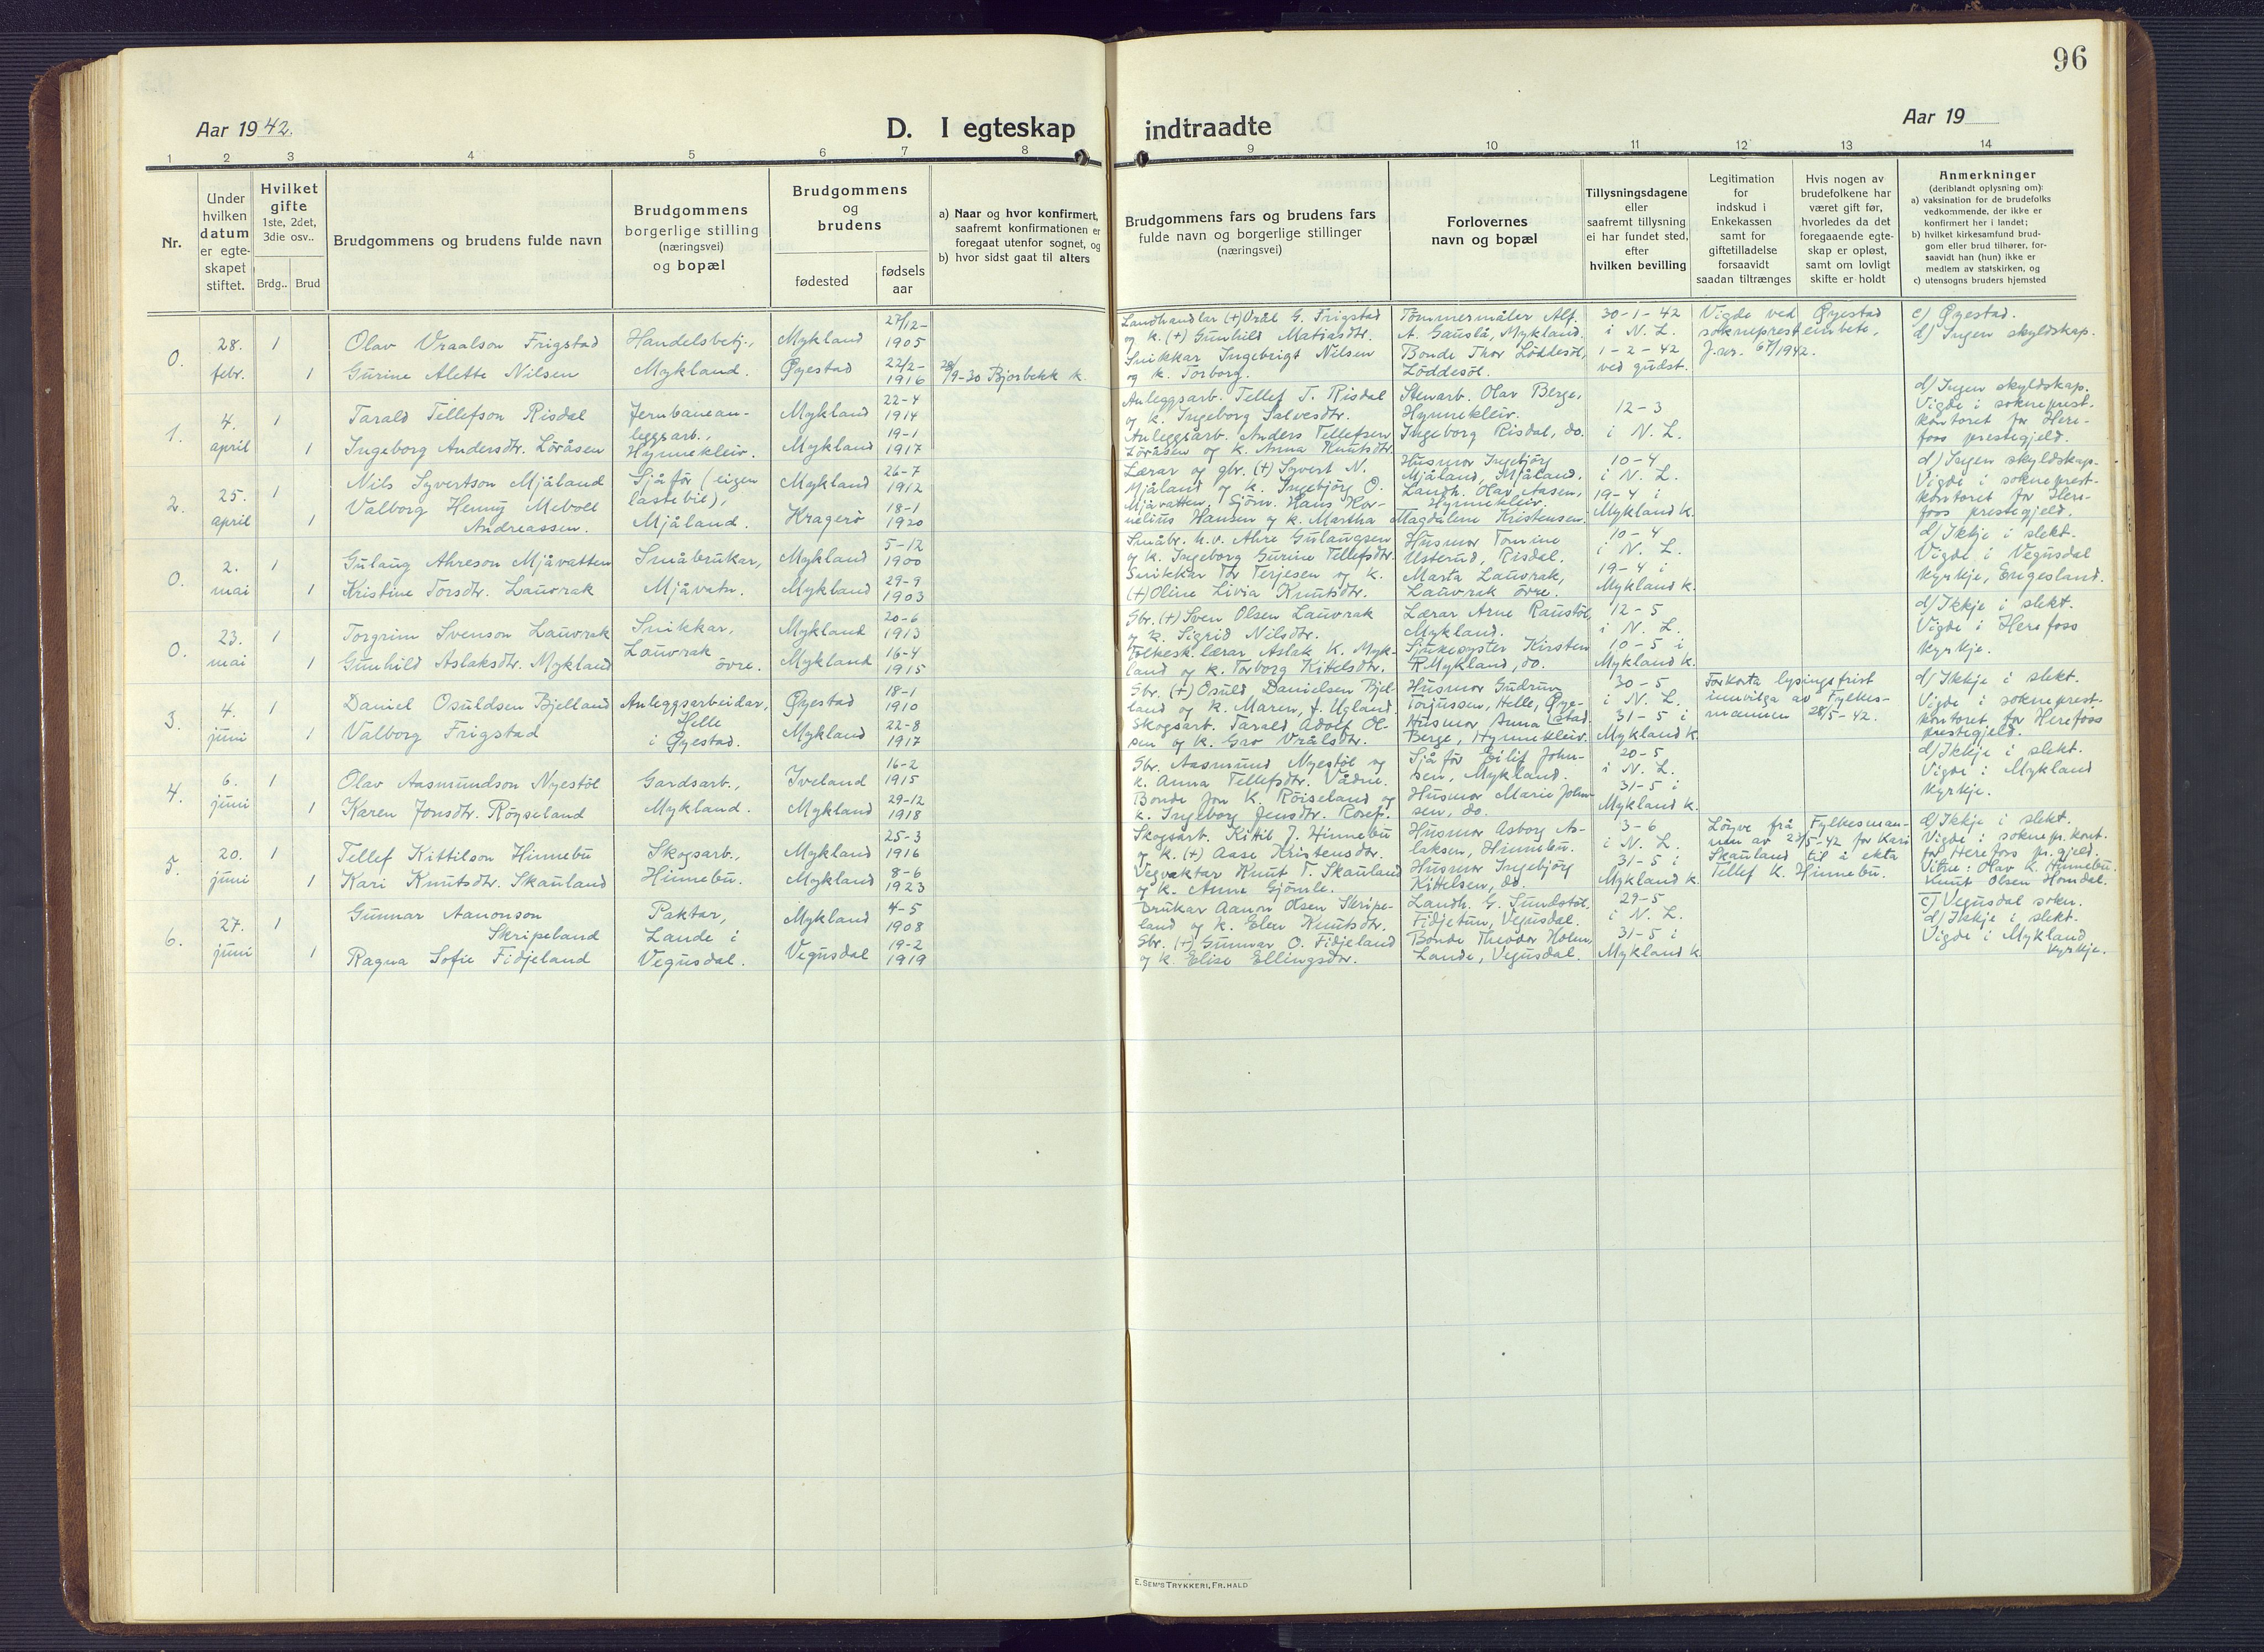 96
Aar 1942.
D. I egteskap indtraadte
Aar 19
1 2 3 4 5 6 7 8 9 10 11 12 13 14
Nr.
Under
hvilken
datum
er egte-
skapet
stiftet.
Hvilket
gifte
1ste, 2det,
3die osv..
Brdg.. Brud
Brudgommens og brudens fulde navn
Brudgommens
borgerlige stilling
(næringsvei)
og bopæl
Brudgommens
og
brudens
fødested
fødsels
aar
a) Naar og hvor konfirmert,
saafremt konfirmationen er
foregaat utenfor sognet, og
b) hvor sidst gaat til alters
Brudgommens fars og brudens fars
fulde navn og borgerlige stillinger
(næringsvei)
Forlovernes
navn og bopæl
Tillysningsdagene
eller
saafremt tillysning
ei har fundet sted,
efter
hvilken bevilling
Legitimation
for
indskud i
Enkekassen
samt for
giftetilladelse
forsaavidt
saadan tiltrænges
Hvis nogen av
brudefolkene har
været gift før,
hvorledes da det
foregaaende egte-
skap er opløst,
samt om lovligt
skifte er holdt
Anmerkninger
(deriblandt oplysning om):
a) vaksination for de brudefolks
vedkommende, der ikke er
konfirmert her i landet;
b) hvilket kirkesamfund brud-
gom eller brud tilhører, for-
saavidt han (hun) ikke er
medlem av statskirken, og
c) utensogns bruders hjemsted
0.
28.
febr.
1
1
Olav Vraalson Frigstad
Gurine Alette Nilsen
Handelsbetj.,
Mykland.
Mykland
Øyestad
27/12-
1905
22/2-
1916
28/9-30 Bjorbekk k.
Landhandlar (+) Vrål G. Frigstad
og k. (+) Gunhild Matiasdtr.
Snikkar Ingebrigt Nilsen
og k. Torborg.
Tømmermåler Alf.
A. Gauslå, Mykland.
Bonde Thor Løddesøl,
Løddesøl.
30-1-42
i N. L.
1-2-42
ved gudst.
Vigde ved Øyestad
sokneprestembete,
J.nr. 67/1942.
c) Øyestad.
d) Ingen skyldskap.
1.
4.
april
1
1
Tarald Tellefson Risdal
Ingeborg Andersdtr. Löråsen
Jernbanean-
leggsarb.,
Hynnekleiv.
Mykland
Mykland
22-4
1914
19-1
1917
Anleggsarb. Tellef T. Risdal
og k. Ingeborg Salvesdtr.
Anleggsarb. Anders Tellefsen
Löråsen og k. Anna Knutsdtr.
Stenarb. Olav Berge,
Hynnekleiv.
Ingeborg Risdal, do.
12-3
i N. L.
d) Ingen skyldskap.
Vigde i sokneprest-
kontoret for Here-
foss prestegjeld.
2.
25.
april
1
1
Nils Syvertson Mjåland
Valborg Henny Meboll
Andreassen.
Sjåfør (eigen
lastebil),
Mjåland.
Mykland
Kragerø
26-7
1912
18-1
1920
Lærar og gbr. (+) Syvert N.
Mjåland og k. Ingebjörg O.
Mjåvatten, Sjöm. Hans Kor-
nelius Hansen og k. Martha
Husmor Ingebjörg
Mjåland, Mjåland.
Landh. Olav Aasen,
Hynnekleiv.
Magdalene Kristensen.
10-4
i N. L.
19-4 i
Mykland k.
d) Ingen skyldskap-
Vigde i sokneprest-
kontoret for Here-
foss prestegjeld.
0.
2.
mai
1
1
Gulaug Ahreson Mjåvatten
Kristine Torsdtr. Lauvrak
Småbrukar,
Mjåvatn.
Mykland
Mykland
5-12
1900
29-9
1903
Småbr. h.v. Ahre Gulaugsen
og k. Ingeborg Gurine Tellefsdtr.
Snikkar Tor Terjesen og k.
(+) Oline Livia Knutsdtr.
Husmor Tomine
Usterud, Risdal.
Marta Lauvrak,
Lauvrak øvre.
10-4
i N. L.
19-4 i
Mykland k.
d) Ikkje i slekt.
Vigde i Vegusdal
kyrkje, Engesland.
0.
23.
mai
1
1
Torgrim Svenson Lauvrak
Gunhild Aslaksdtr. Mykland
Snikkar,
Lauvrak
øvre.
Mykland
Mykland
20-6
1913
16-4
1915
Gbr. (+) Sven Olsen Lauvrak
og k. Sigrid Nilsdtr.
Folkesk. lærar Aslak K. Myk-
land og k. Torborg Kittelsdtr.
Lærar Arne Raustöl,
Mykland.
Sjukesyster Kirsten
R Mykland, do.
12-5
i N. L.
10-5 i
Mykland k.
d) Ikkje i slekt.
Vigde i Herefoss
kyrkje.
3.
4.
juni
1
1
Daniel Osuldsen Bjelland
Valborg Frigstad
Anleggsarbeidar,
Helle
i Øyestad.
Øyestad
Mykland
18-1
1910
22-8
1917
Gbr. (+) Osuld Danielsen Bjel-
land og k. Maren, f. Ugland
Skogsarb. Tarald Adolf Ol-
sen og k. Gro Vrålsdtr.
Husmor Gudrun
Torjussen, Helle, Øye-
stad.
Husmor Anna
Berge, Hynnekleiv.
30-5
i N. L.
31-5 i
Mykland k.
Forkorta lysingsfrist
innvilga av Fylkes-
mannen 28/5-42.
d) Ikkje i slekt.
Vigde i sokneprest-
kontoret for Herefoss
prestegjeld.
4.
6.
juni
1
1
Olav Aasmundson Nyestöl
Karen Jonsdtr. Röyseland
Gardsarb.,
Mykland.
Iveland
Mykland
16-2
1915
29-12
1918
Gbr. Aasmund Nyestöl og
k. Anna Tellefsdtr. Vådne.
Bonde Jon K. Röiseland og
k. Ingeborg Jensdtr. Rosef.
Sjåför Eilif John-
sen, Mykland.
Husmor Marie John-
sen, do.
20-5
i N. L.
31-5 i
Mykland k.
d) Ikkje i slekt.
Vigde i Mykland
kyrkje.
5.
20.
juni
1
1
Tellef Kittilson Hinnebu
Kari Knutsdtr. Skauland
Skogsarb.,
Hinnebu.
Mykland
Mykland
25-3
1916
8-6
1923
Skogsarb. Kittil J. Hinnebu
og k. (+) Aase Kristensdtr.
Vegvaktar Knut T. Skauland
og k. Anne Gjömle.
Husmor Asborg As-
laksen, Hinnebu.
Husmor Ingebjörg
Kittelsen, do.
3-6
i N. L.
31-5 i
Mykland k.
Löyve frå Fylkesman-
nen av 23/5-42 for Kari
Skauland til å ekta
Tellef K. Hinnebu.
d) Ikkje i slekt.
Vigde i soknepr. kont.
for Herefoss pr.gjeld.
Vitne: Olav K. Hinnebu.
Knut Olsen Homdal.
6.
27.
juni
1
1
Gunnar Aanonson
Skripeland
Ragna Sofie Fidjeland
Paktar,
Lande i
Vegusdal.
Mykland
Vegusdal
4-5
1908
19-2
1919
Brukar Aanon Olsen Skripe-
land og k. Elen Knutsdtr.
Gbr. (+) Gunnar O. Fidjeland
og k. Elise Ellingsdtr.
Landh. G. Sundstöl,
Fidjetun, Vegusdal.
Bonde Theodor Holm,
Lande, Vegusdal.
29-5
i N. L.
31-5 i
Mykland k.
c) Vegusdal sokn.
d) Ikkje i slekt.
Vigde i Mykland
kyrkje.
E. SEM'S TRYKKERI, FR.HALD